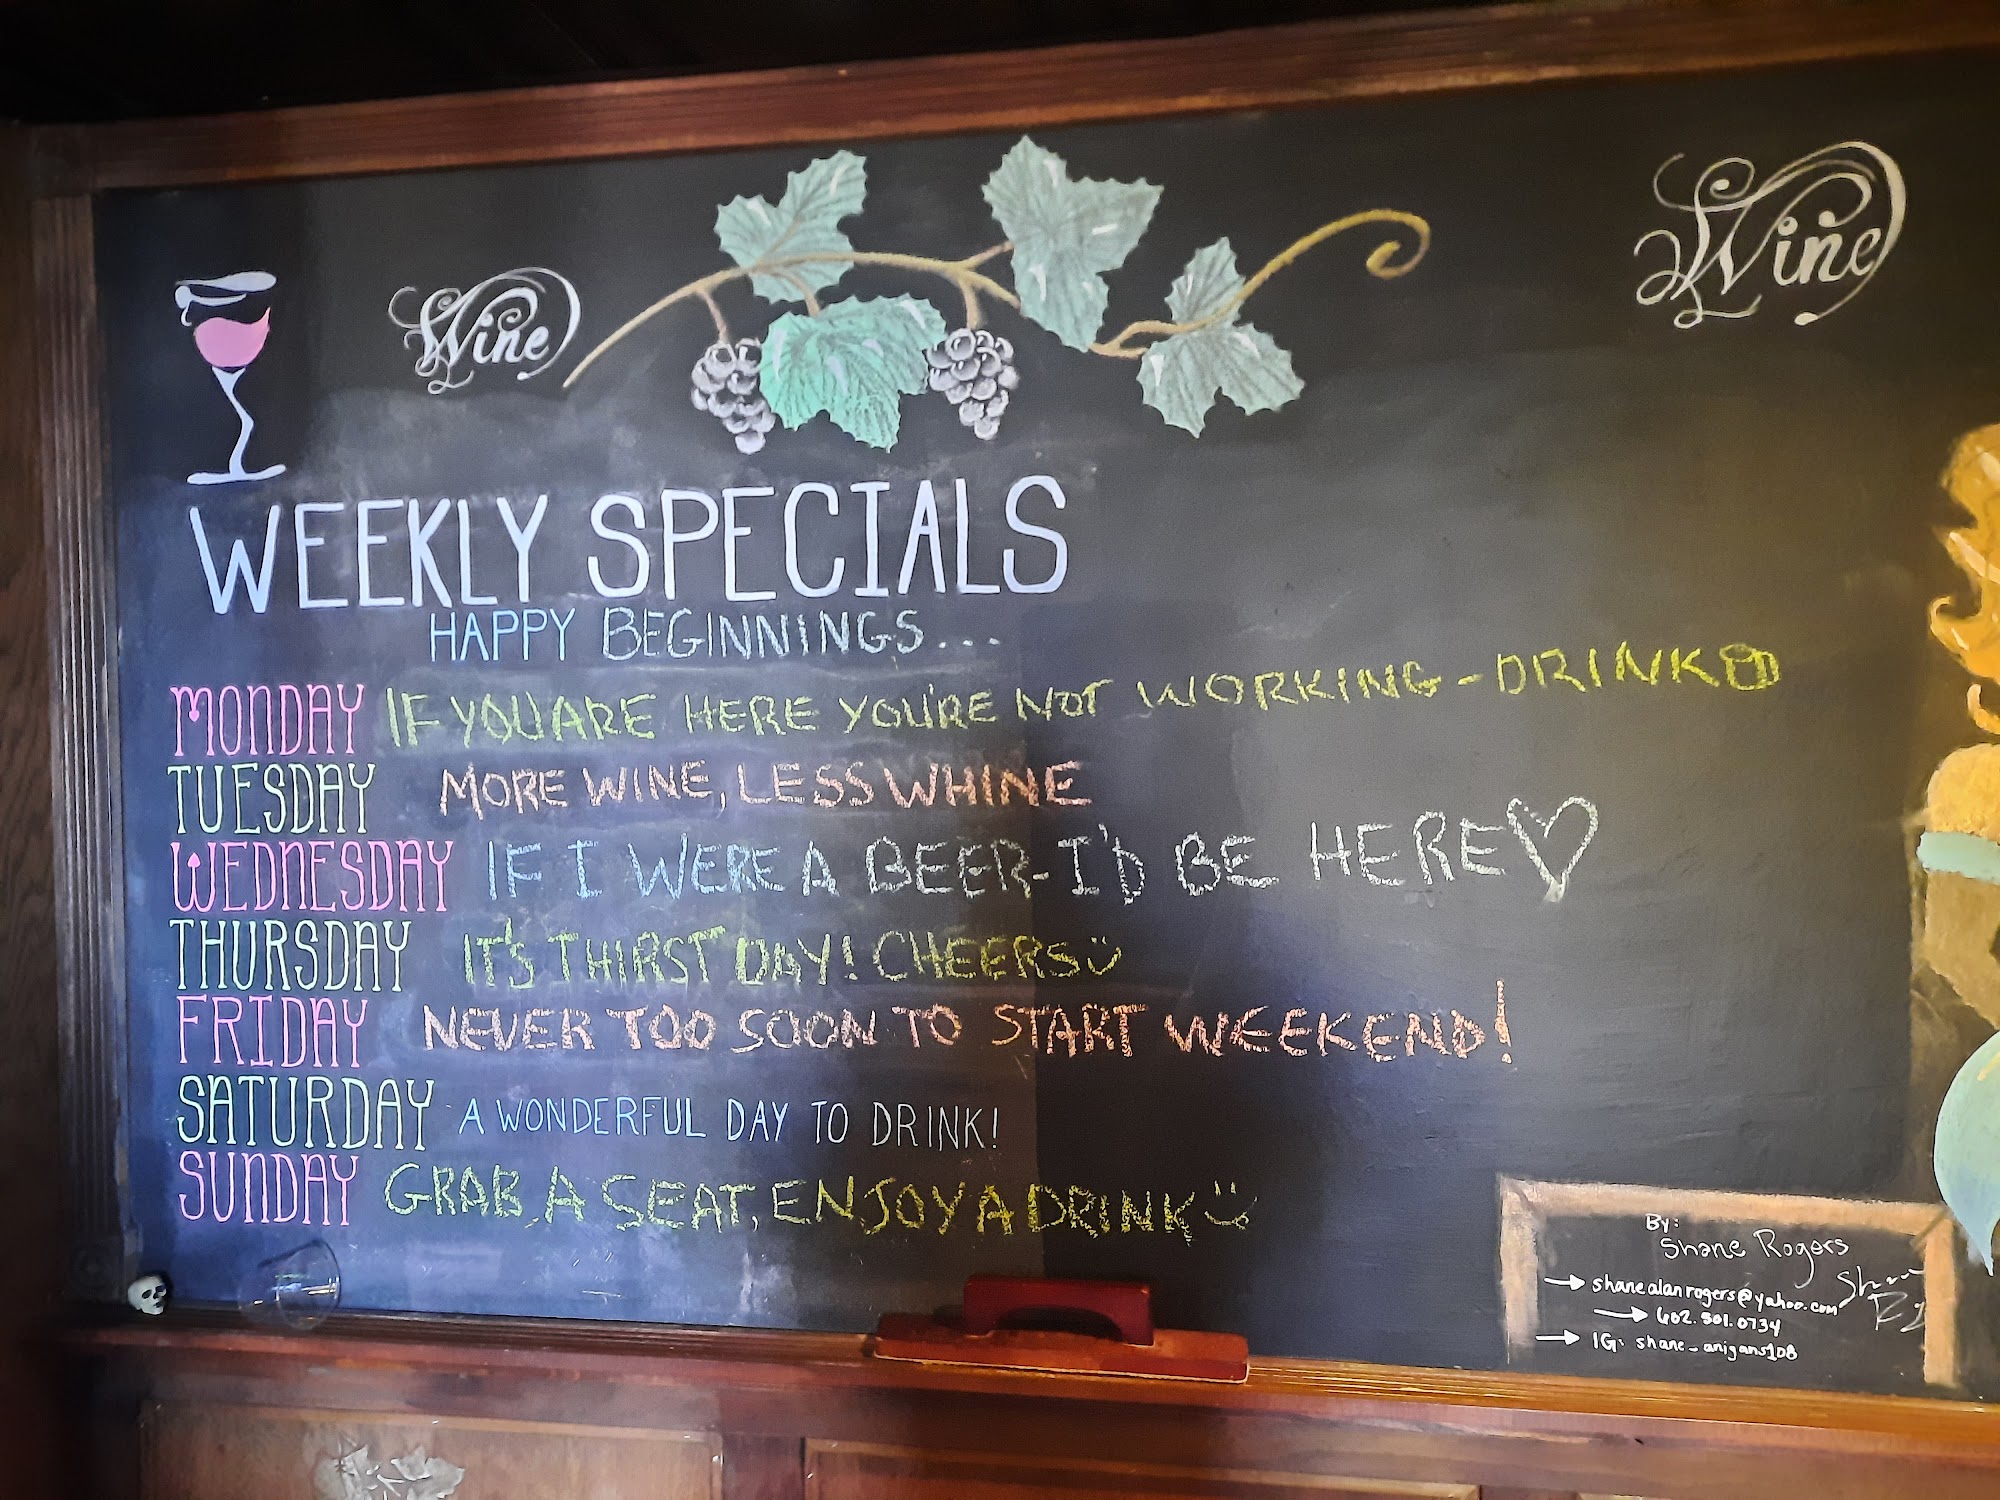 Wine
Wine
WEEKLY SPECIALS
HAPPY BEGINNINGS...
MONDAY IF YOU ARE HERE YOU'RE NOT WORKING - DRINK
TUESDAY MORE WINE, LESS WHINE
WEDNESDAY IF I WERE A BEER-I'D BE HERE
THURSDAY IT'S THIRST DAY! CHEERS
FRIDAY NEVER TOO SOON TO START WEEKEND!
SATURDAY A WONDERFUL DAY TO DRINK!
SUNDAY GRAB A SEAT, ENJOY A DRINK
By:
Shane Rogers
shanealanrogers@yahoo.com
602.501.0734
IG: shane_anigans108